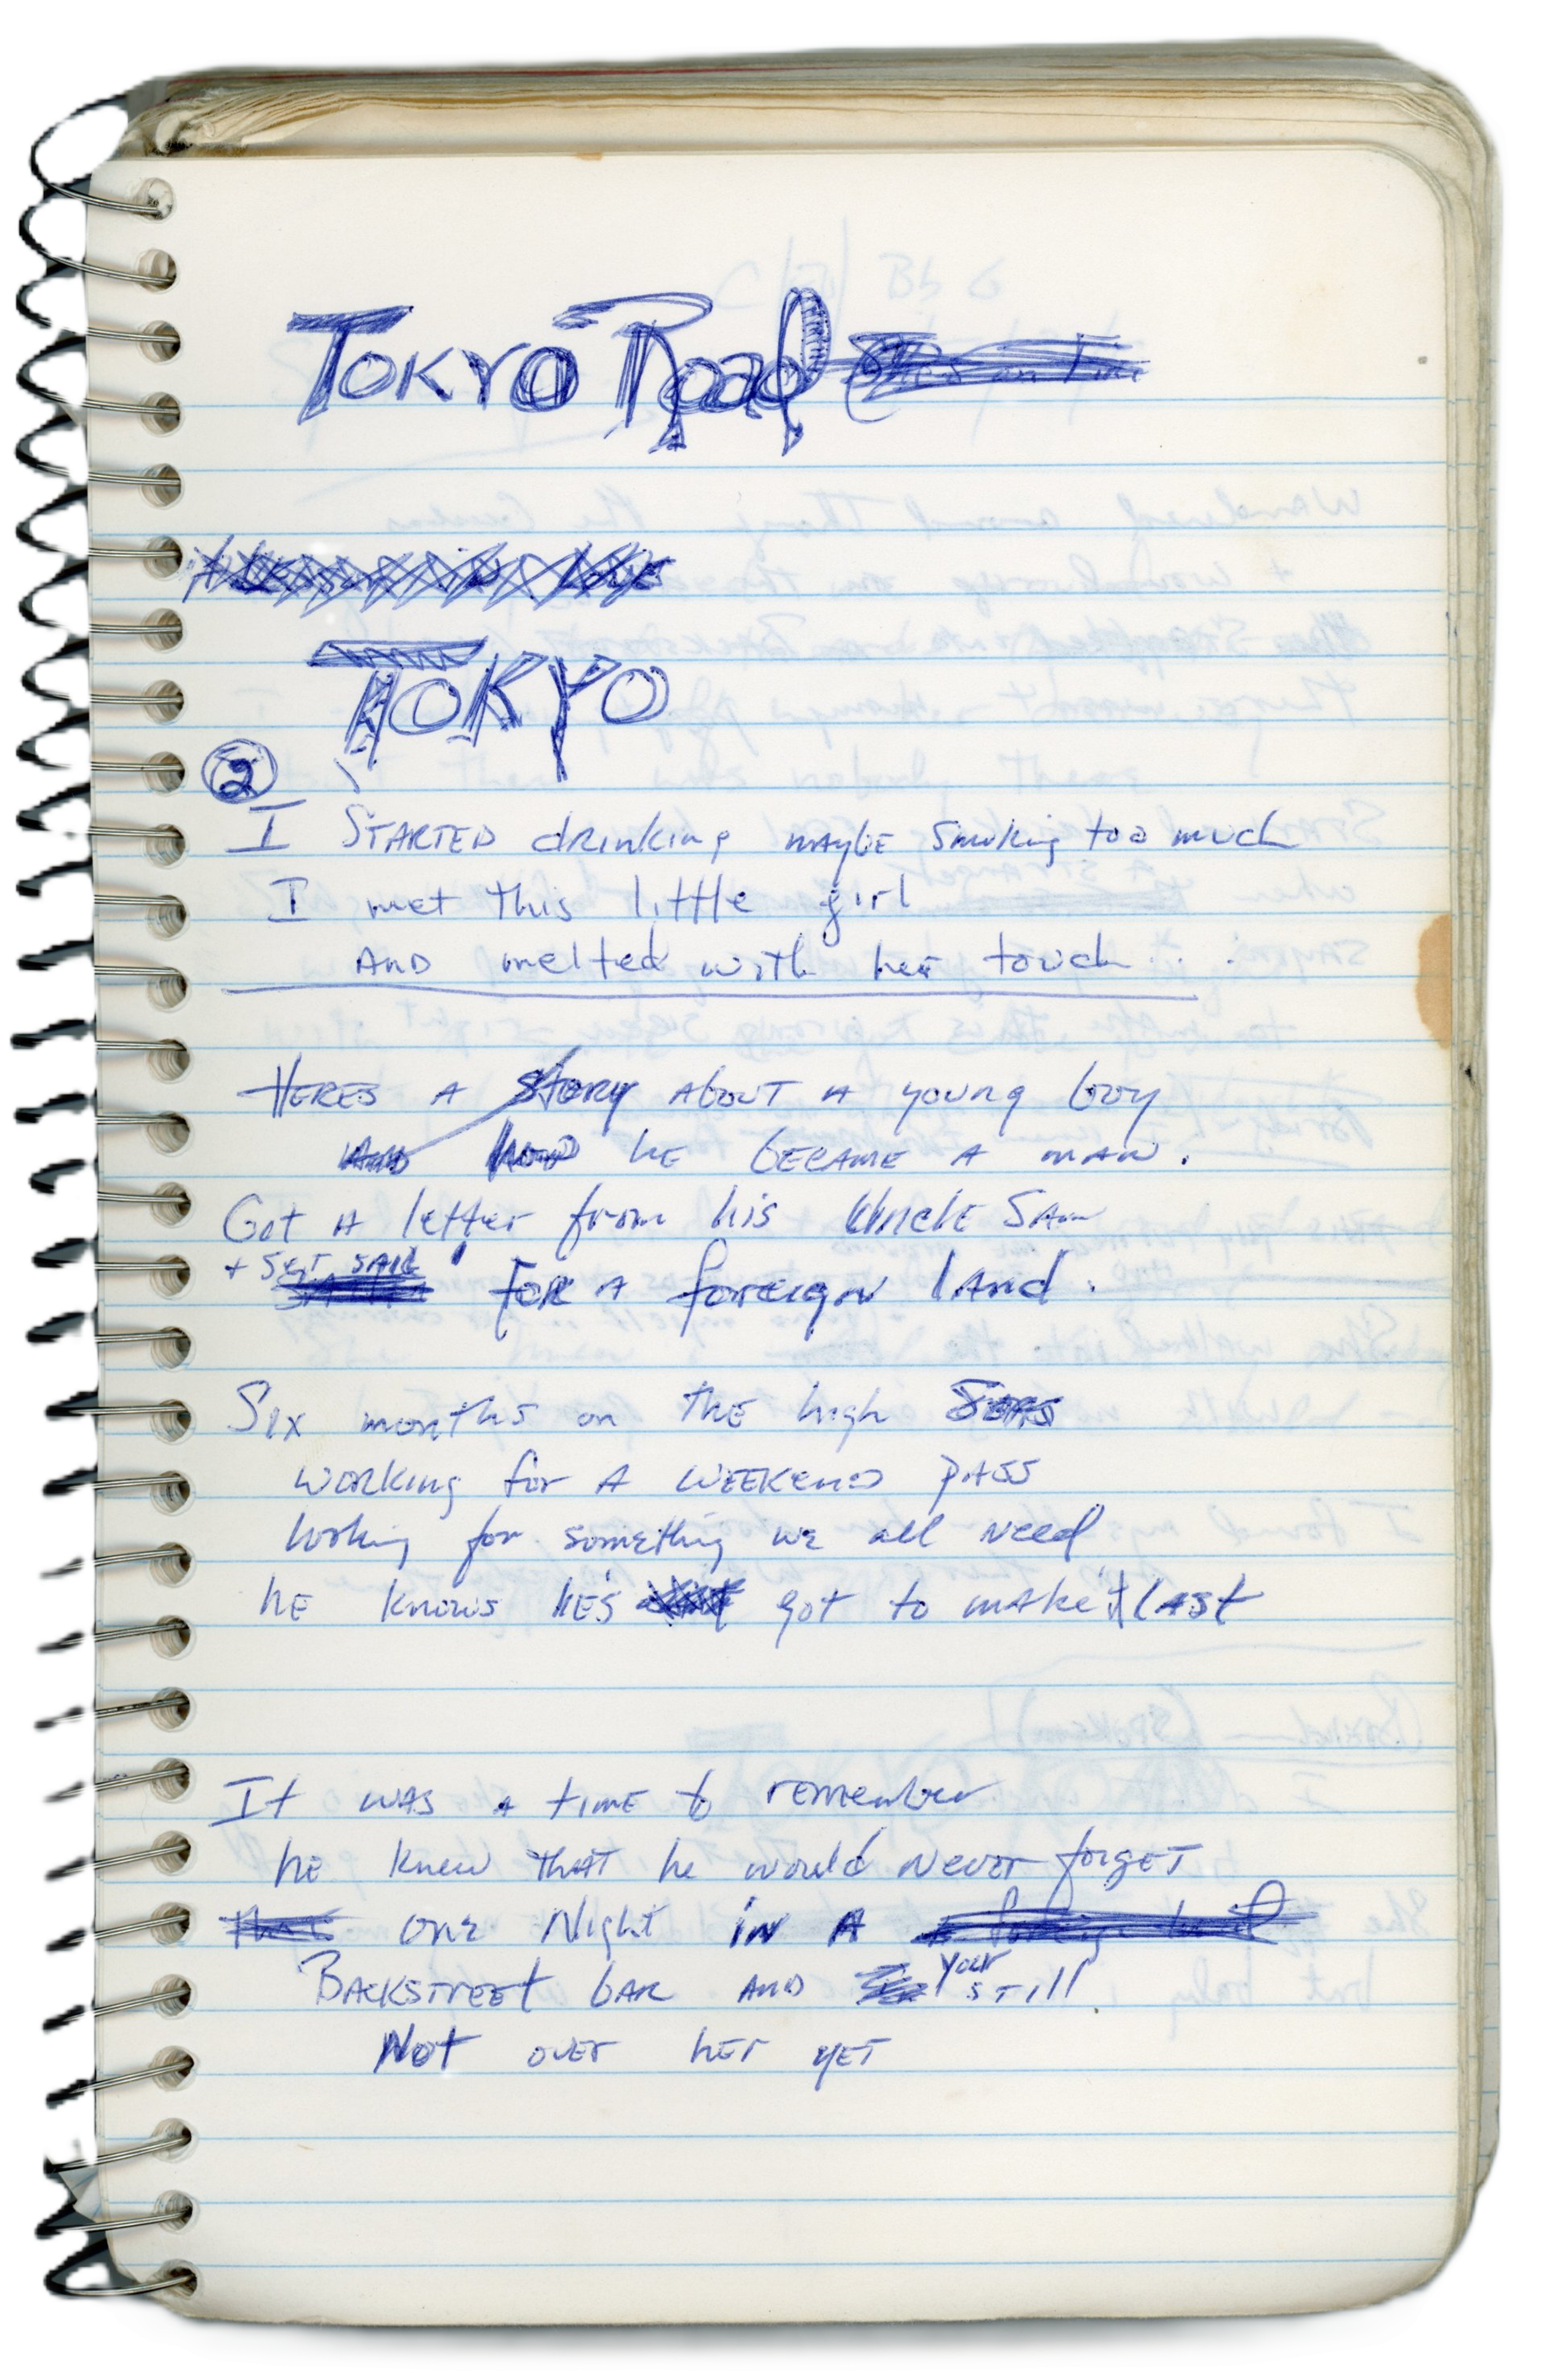 Tokyo Road
TOKYO
2
I STARTED drinking maybe smoking too much
I met this little girl
AND melted with her touch . . .
HERES A story about A young boy
AND how he became A man.
Got A letter from his Uncle Sam
+ Set SAIL
FOR A foreign land.
Six months on the high SEAS
working for A WEEKEND PASS
looking for something we all need
he knows he's got to make it last
It was a time to remember
he knew that he would never forget
that one Night in A
Backstreet bar AND your still
Not over her yet